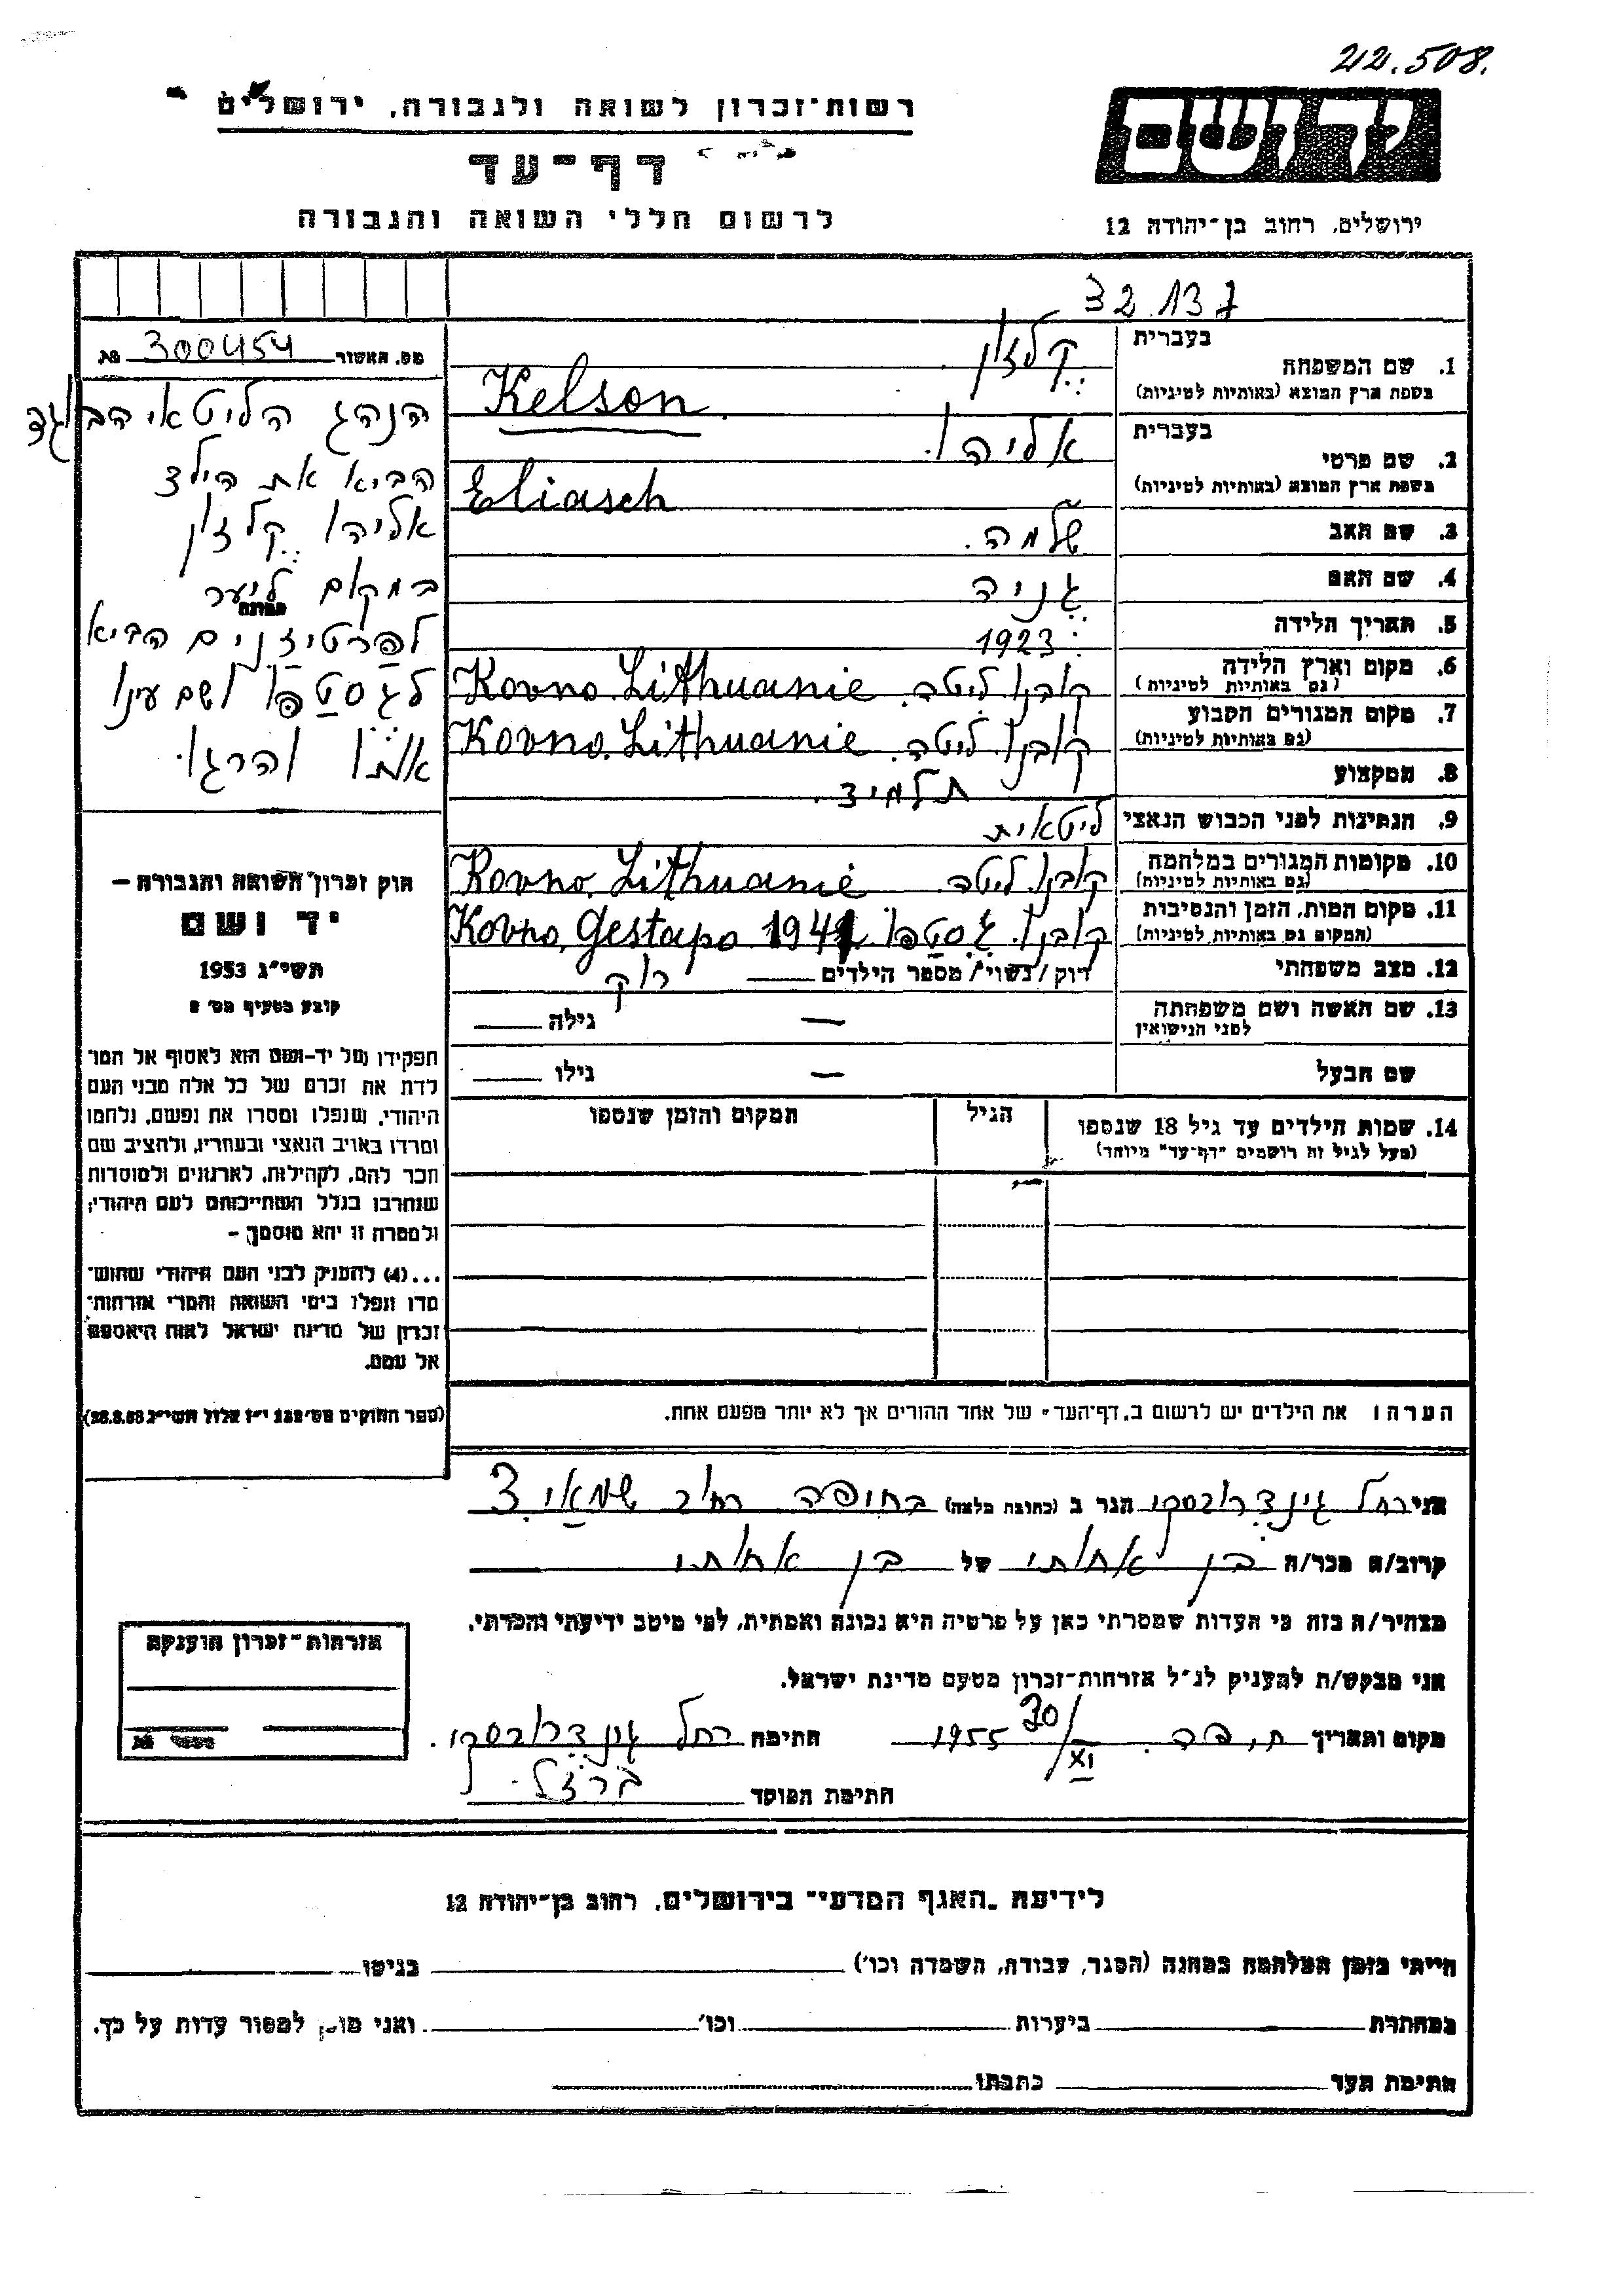 22.508.
רשות־זכרון לשואה ולגבורה, ירושלים
יד ושם
דף־עד
לרשום חללי השואה והגבורה
ירושלים, רחוב בן־יהודה 12
32.137
מס. האשור 300454
הנהג הליטאי הבוגד
הביא את הילד
אליהו קלזון
במקום ליער
תמונה
לפרטיזנים הביא
לגסטפו ושם עינו
אותו והרגו.
חוק זכרון השואה והגבורה —
יד ושם
תשי״ג 1953
קובע בסעיף מס׳ 2
תפקידו של יד-ושם הוא לאסוף אל המו
לדת את זכרם של כל אלה מבני העם
היהודי, שנפלו ומסרו את נפשם, נלחמו
ומרדו באויב הנאצי ובעוזריו, ולהציב שם
וזכר להם, לקהילות, לארגונים ולמוסדות
שנחרבו בגלל השתייכותם לעם היהודי;
ולמטרה זו יהא מוסמך –
...(4) להעניק לבני העם היהודי שהוש־
מדו ונפלו בימי השואה והמרי אזרחות־
זכרון של מדינת ישראל לאות היאספם
אל עמם.
(ספר החוקים מס׳ 132 י״ז אלול תשי״ג 28.8.53)
1. שם המשפחה בעברית קלזון.
בשפת ארץ המוצא (באותיות לטיניות) Kelson.
2. שם פרטי בעברית אליהו.
בשפת ארץ המוצא (באותיות לטיניות) Eliasch
3. שם האב שלמה.
4. שם האם גניה
5. תאריך הלידה 1923
6. מקום וארץ הלידה (גם באותיות לטיניות) קובנו ליטה. Kovno. Lithuanie
7. מקום המגורים הקבוע (גם באותיות לטיניות) קובנו. ליטה. Kovno. Lithuanie
8. המקצוע תלמיד.
9. הנתינות לפני הכבוש הנאצי ליטאית
10. מקומות המגורים במלחמה (גם באותיות לטיניות) קובנו ליטה. Kovno. Lithuanie
11. מקום המות, הזמן והנסיבות (המקום גם באותיות לטיניות) קובנו. גסטפו. Kovno, Gestapo 1941
12. מצב משפחתי רווק / נשוי / מספר הילדים רוק
13. שם האשה ושם משפחתה לפני הנישואין — גילה
שם הבעל — גילו
14. שמות הילדים עד גיל 18 שנספו הגיל המקום והזמן שנספו
(מעל לגיל זה רושמים "דף־עד" מיוחד)
הערה: את הילדים יש לרשום ב„דף־העד״ של אחד ההורים אך לא יותר מפעם אחת.
אני רחל הגר ב (כתובת מלאה) בחיפה רחוב שמאי 3
קרוב/ה מכר/ה בן אחותי של בן אחותי
מצהיר/ה בזה כי העדות שמסרתי כאן על פרטיה היא נכונה ואמתית, לפי מיטב ידיעתי והכרתי.
אני מבקש/ת להעניק לנ״ל אזרחות־זכרון מטעם מדינת ישראל.
מקום ותאריך חיפה. 30/XI 1955 חתימה רחל
חתימת הפוקד
אזרחות־זכרון הוענקה
לידיעת „האגף המדעי״ בירושלים, רחוב בן־יהודה 12
הייתי בזמן המלחמה במחנה (הסגר, עבודה, השמדה וכו׳) בגיטו
במחתרת ביערות וכו׳ ואני מוכן למסור עדות על כך.
חתימת העד כתבתו